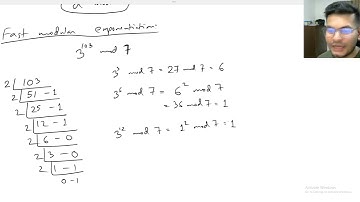 Fast modular exponentiation:
3^103 mod 7
2 | 103
2 | 51 - 1
2 | 25 - 1
2 | 12 - 1
2 | 6 - 0
2 | 3 - 0
2 | 1 - 1
0 - 1
3^3 mod 7 = 27 mod 7 = 6
3^6 mod 7 = 6^2 mod 7
= 36 mod 7 = 1
3^12 mod 7 = 1^2 mod 7 = 1